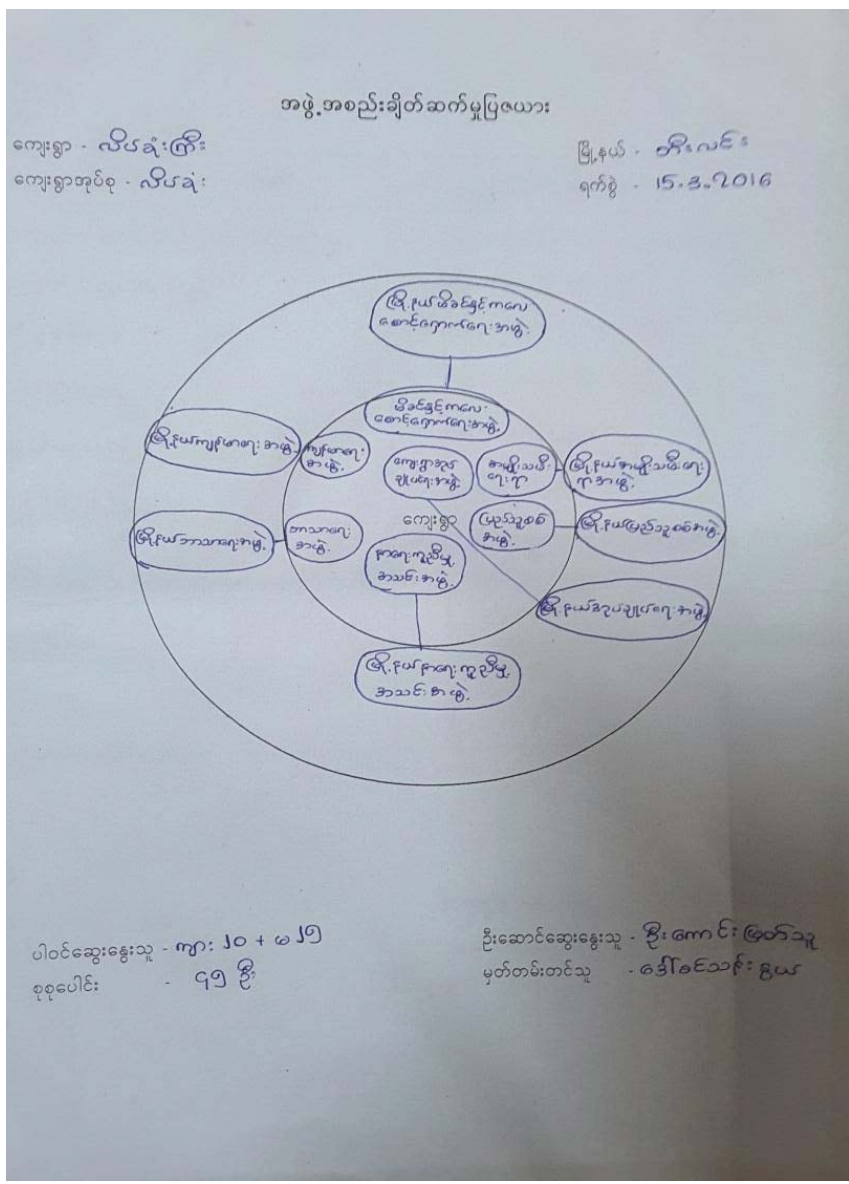 အဖွဲ့အစည်းချိတ်ဆက်မှုပြဇယား
ကျေးရွာ - လိပ်ခုံးကြီး
မြို့နယ် - ထီးလင်း
ကျေးရွာအုပ်စု - လိပ်ခုံး
ရက်စွဲ - 15.3.2016
မြို့နယ်မိခင်နှင့်ကလေး
စောင့်ရှောက်ရေးအဖွဲ့
မိခင်နှင့်ကလေး
စောင့်ရှောက်ရေးအဖွဲ့
မြို့နယ်ကျန်မာရေးအဖွဲ့
ကျန်မာရေး
အဖွဲ့
ကျေးရွာအုပ်
ချုပ်ရေးအဖွဲ့
အမျိုးသမီး
ရေးရာ
မြို့နယ်အမျိုးသမီးရေး
ရာအဖွဲ့
မြို့နယ်ဘာသာရေးအဖွဲ့
ဘာသာရေး
အဖွဲ့
ကျေးရွာ
ပြည်သူ့စစ်
အဖွဲ့
မြို့နယ်ပြည်သူ့စစ်အဖွဲ့
နာရေးကူညီမှု
အသင်းအဖွဲ့
မြို့နယ်အုပ်ချုပ်ရေးအဖွဲ့
မြို့နယ်နာရေးကူညီမှု
အသင်းအဖွဲ့
ပါဝင်ဆွေးနွေးသူ - ကျား ၂၀ + မ ၂၅
ဦးဆောင်ဆွေးနွေးသူ - ဦးကောင်းမြတ်သူ
စုစုပေါင်း - ၄၅ ဦး
မှတ်တမ်းတင်သူ - ဒေါ်ခင်သန်းနွယ်